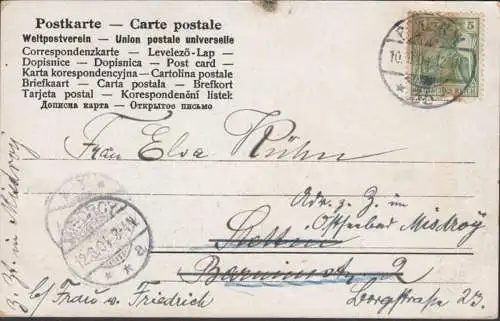 Postkarte — Carte postale
Weltpostverein — Union postale universelle
Correspondenzkarte — Levelező-Lap —
Dopisnice — Dopisnica — Post card —
Karta korespondencyjna — Cartolina postale
Briefkaart — Carta postala — Brefkort
Tarjeta postal — Korespondenční listek
Дописна карта — Открытое письмо
5
Frau Elsa Kühn
Adr. z. Z. im
Ostseebad Misdroy
Stettin
Barnimstr. 2
b/ Frau v. Friedrich
Bergstrasse 23.
z. Zt. in Misdroy
MISDROY